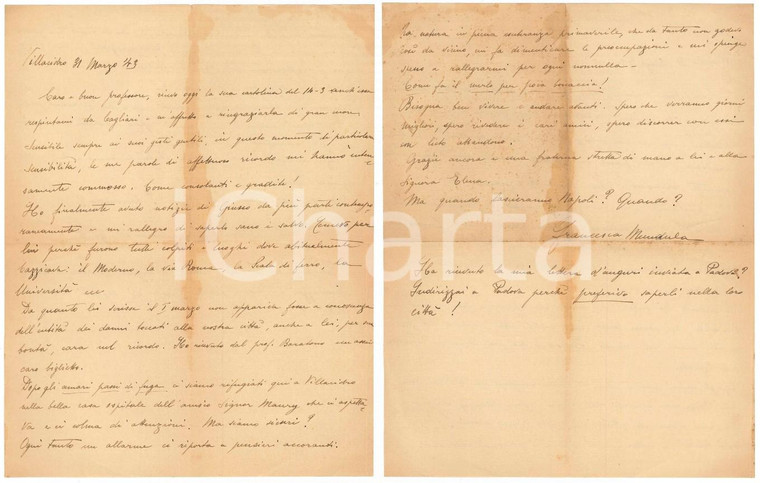 Villacidro 21 Marzo '43
Caro e buon professore, ricevo oggi la sua cartolina del 14-3
respintami da Cagliari e mi affretto a ringraziarla di gran cuore.
Sensibile sempre ai suoi gesti gentili, in questo momento di particolare
sensibilità, le sue parole di affettuoso ricordo mi hanno inten-
samente commosso. Come consolanti e gradite!
Ho finalmente avuto notizie da più parti contempo
raneamente e mi rallegro di saperlo sano e salvo,
lui perché furono tutti colpiti i luoghi dove abitualmente
bazzicava: il Moderno, la via Roma, la Scala di ferro, la
Università
Da quanto lei scrisse il I marzo non appariva fosse a conoscenza
dell'entità dei danni toccati alla nostra città, anche a lei, per sua
bontà, cara nel ricordo. Ho ricevuto dal prof. Baratono un assai
caro biglietto.
Dopo gli amari passi di fuga ci siamo rifugiati qui a Villacidro
nella bella casa ospitale dell'amico Signor Maury che ci aspetta-
va e ci colma di attenzioni. Ma siamo sicuri?
Ogni tanto un allarme ci riporta a pensieri accoranti.
La natura in piena esultanza primaverile, che da tanto non godevo
così da vicino, mi fa dimenticare le preoccupazioni e mi spinge
a rallegrarmi per ogni nonnulla -
Come fa il merlo per poca bonaccia!
Bisogna ben vivere e andare avanti. Spero che verranno giorni
migliori, spero rivedere i cari amici, spero discorrer con essi
con lieto abbandono.
Grazie ancora e una fraterna stretta di mano a lei e alla
Signora Elena.
Ma quando lasceranno Napoli? Quando?
Francesca Mundula
Ha ricevuto la mia lettera d'auguri inviata a Padova?
Indirizzai a Padova perché preferivo saperli nella loro
città!
iCharta